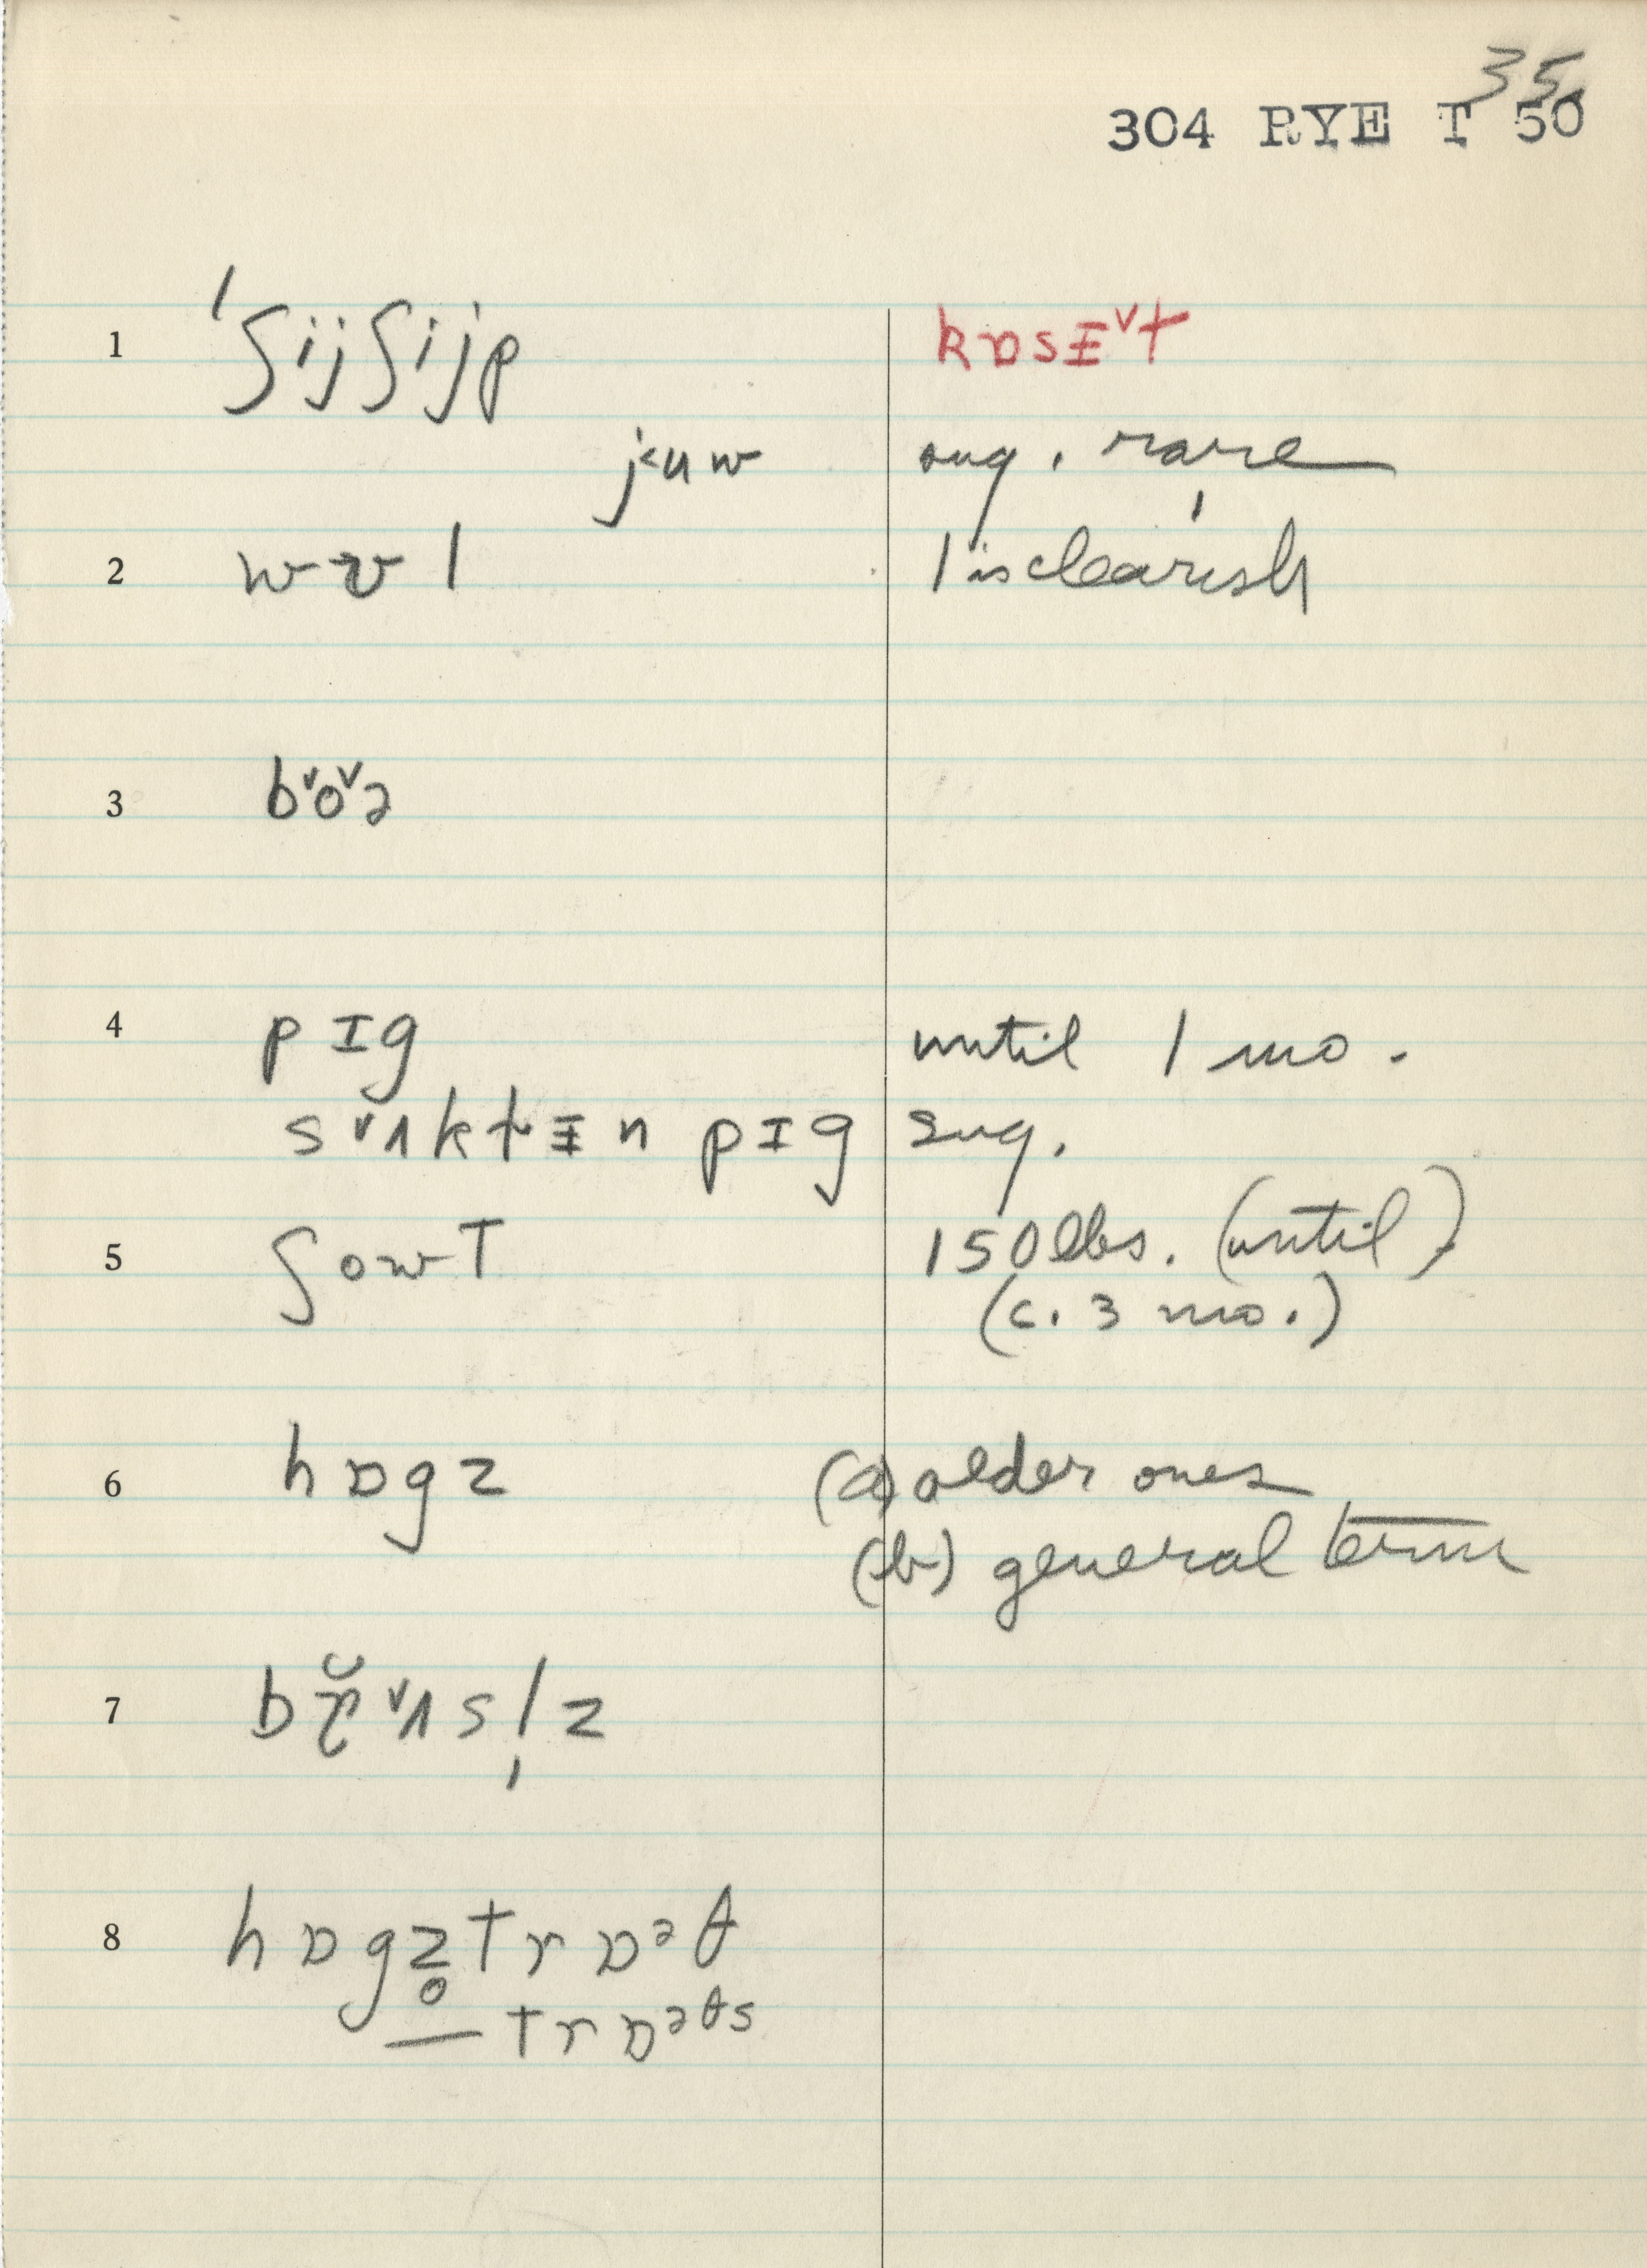 35
304 RYE T 50
1 ˈʃijʃijp kɒsɪ̵ˇt
j<uw sug. rare
2 wʊl l is clearish
3 bˇoˇə
4 pɪg until 1 mo.
sˇʌktɪ̵n pɪg sug.
5 ʃowT 150 lbs. (until)
(c. 3 mo.)
6 hɒgz (a) older ones
(b) general term
7 bˇʌsl̩z
8 hɒgz̥trɒᵊθ
— trɒᵊθs